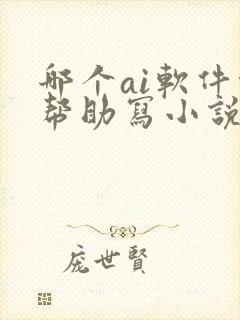 那个ai軟件
幫助寫小說
庞世賢